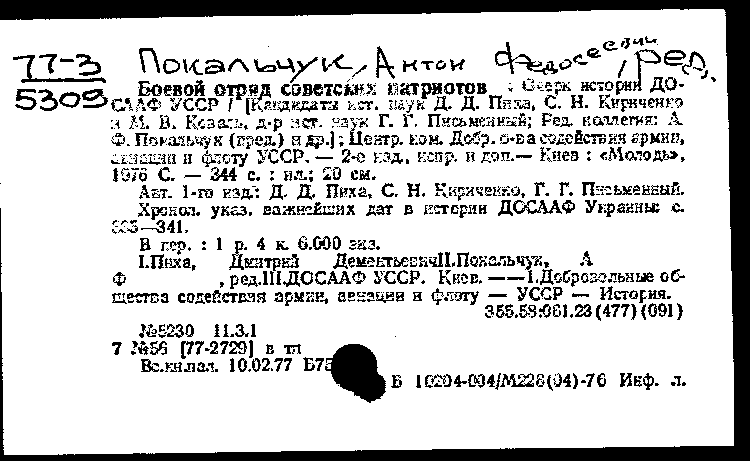 77-3 Покальчук, Антон Федосеевич, ред.
5309
Боевой отряд советских патриотов : Очерк истории ДО-
СААФ УССР / [Кандидаты ист. наук Д. Д. Пиха, С. Н. Кириченко
и М. В. Коваль, д-р ист. наук Г. Г. Письменный; Ред. коллегия: А.
Ф. Покальчук (пред.) и др.] ; Центр. ком. Добр. о-ва содействия армии,
авиации и флоту УССР. — 2-е изд., испр. и доп.— Киев : «Молодь»,
1976 С. — 344 с. : ил.; 20 см.
Авт. 1-го изд.: Д. Д. Пиха, С. Н. Кириченко, Г. Г. Письменный.
Хронол. указ. важнейших дат в истории ДОСААФ Украины: с.
335—341.
В пер. : 1 р. 4 к. 6.000 экз.
I.Пиха, Дмитрий ДементьевичII.Покальчук, А
Ф , ред.III.ДОСААФ УССР. Киев. — —1.Добровольные об-
щества содействия армии, авиации и флоту — УССР — История.
355.58:061.23(477)(091)
№5230 11.3.1
7 №56 [77-2729] в тп
Вс.кн.пал. 10.02.77 Б75
Б 10204-004/М228(04)-76 Инф. л.